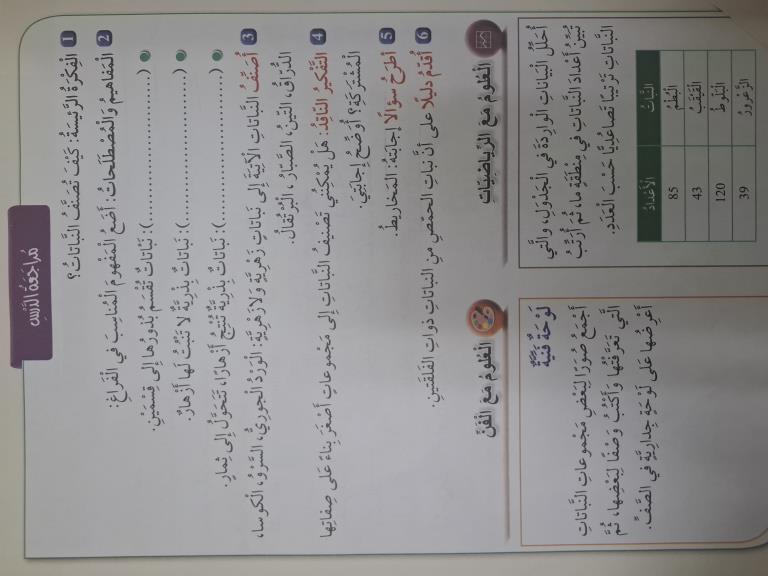 مُراجَعَةُ الدَّرْسِ
1 الْفِكْرَةُ الرَّئيسَةُ: كَيْفَ تُصَنَّفُ النَّباتاتُ؟
2 الْمَفاهيمُ وَالْمُصْطَلَحاتُ: أَضَعُ الْمَفْهومَ الْمُناسِبَ في الْفَراغِ:
(....................): نَباتاتٌ تُقْسَمُ بُذورُها إِلى قِسْمَيْنِ.
(....................): نَباتاتٌ بِذْرِيَّةٌ لا تَنْبُتُ لَها أَزْهارٌ.
(....................): نَباتاتٌ بِذْرِيَّةٌ تُنْتِجُ أَزْهارًا، تَتَحَوَّلُ إِلى ثِمارٍ.
3 أُصَنِّفُ النَّباتاتِ الْآتِيَةَ إِلى نَباتاتٍ زَهْرِيَّةٍ وَلازَهْرِيَّةٍ: الْوَرْدُ الْجورِيُّ، السَّرْوُ، الْكوسا،
الدُّرّاقُ، التّينُ، الصَّبّارُ، الْبُرْتُقالُ.
4 التَّفْكيرُ النّاقِدُ: هَلْ يُمْكِنُني تَصْنيفُ النَّباتاتِ إِلى مَجْموعاتٍ أَصْغَرَ بِناءً عَلى صِفاتِها
الْمُشْتَرَكَةِ؟ أُوَضِّحُ إِجابَتي.
5 أَطْرَحُ سُؤالًا إِجابَتُهُ: الْمَخاريطُ.
6 أُقَدِّمُ دَليلًا عَلى أَنَّ نَباتَ الْحِمَّصِ مِنَ النَّباتاتِ ذَواتِ الْفَلْقَتَيْنِ.
الْعُلومُ مَعَ الرِّياضِيّاتِ
أُحَلِّلُ الْبَياناتِ الْوارِدَةَ في الْجَدْوَلِ، وَالَّتي
تُبَيِّنُ أَعْدادَ النَّباتاتِ في مِنْطَقَةٍ ما، ثُمَّ أُرَتِّبُ
النَّباتاتِ تَرْتيبًا تَصاعُدِيًّا حَسَبَ الْعَدَدِ.
النَّباتُ الْأَعْدادُ
الْبُطْمُ 85
الْقَيْقَبُ 43
الْبَلّوطُ 120
الزَّعْرورُ 39
الْعُلومُ مَعَ الْفَنِّ
لَوْحَةٌ فَنِّيَّةٌ
أَجْمَعُ صُوَرًا لِبَعْضِ مَجْموعاتِ النَّباتاتِ
الَّتي تَعَرَّفْتُها وَأَكْتُبُ وَصْفًا لِبَعْضِها، ثُمَّ
أَعْرِضُها عَلى لَوْحَةٍ جِدارِيَّةٍ في الصَّفِّ.